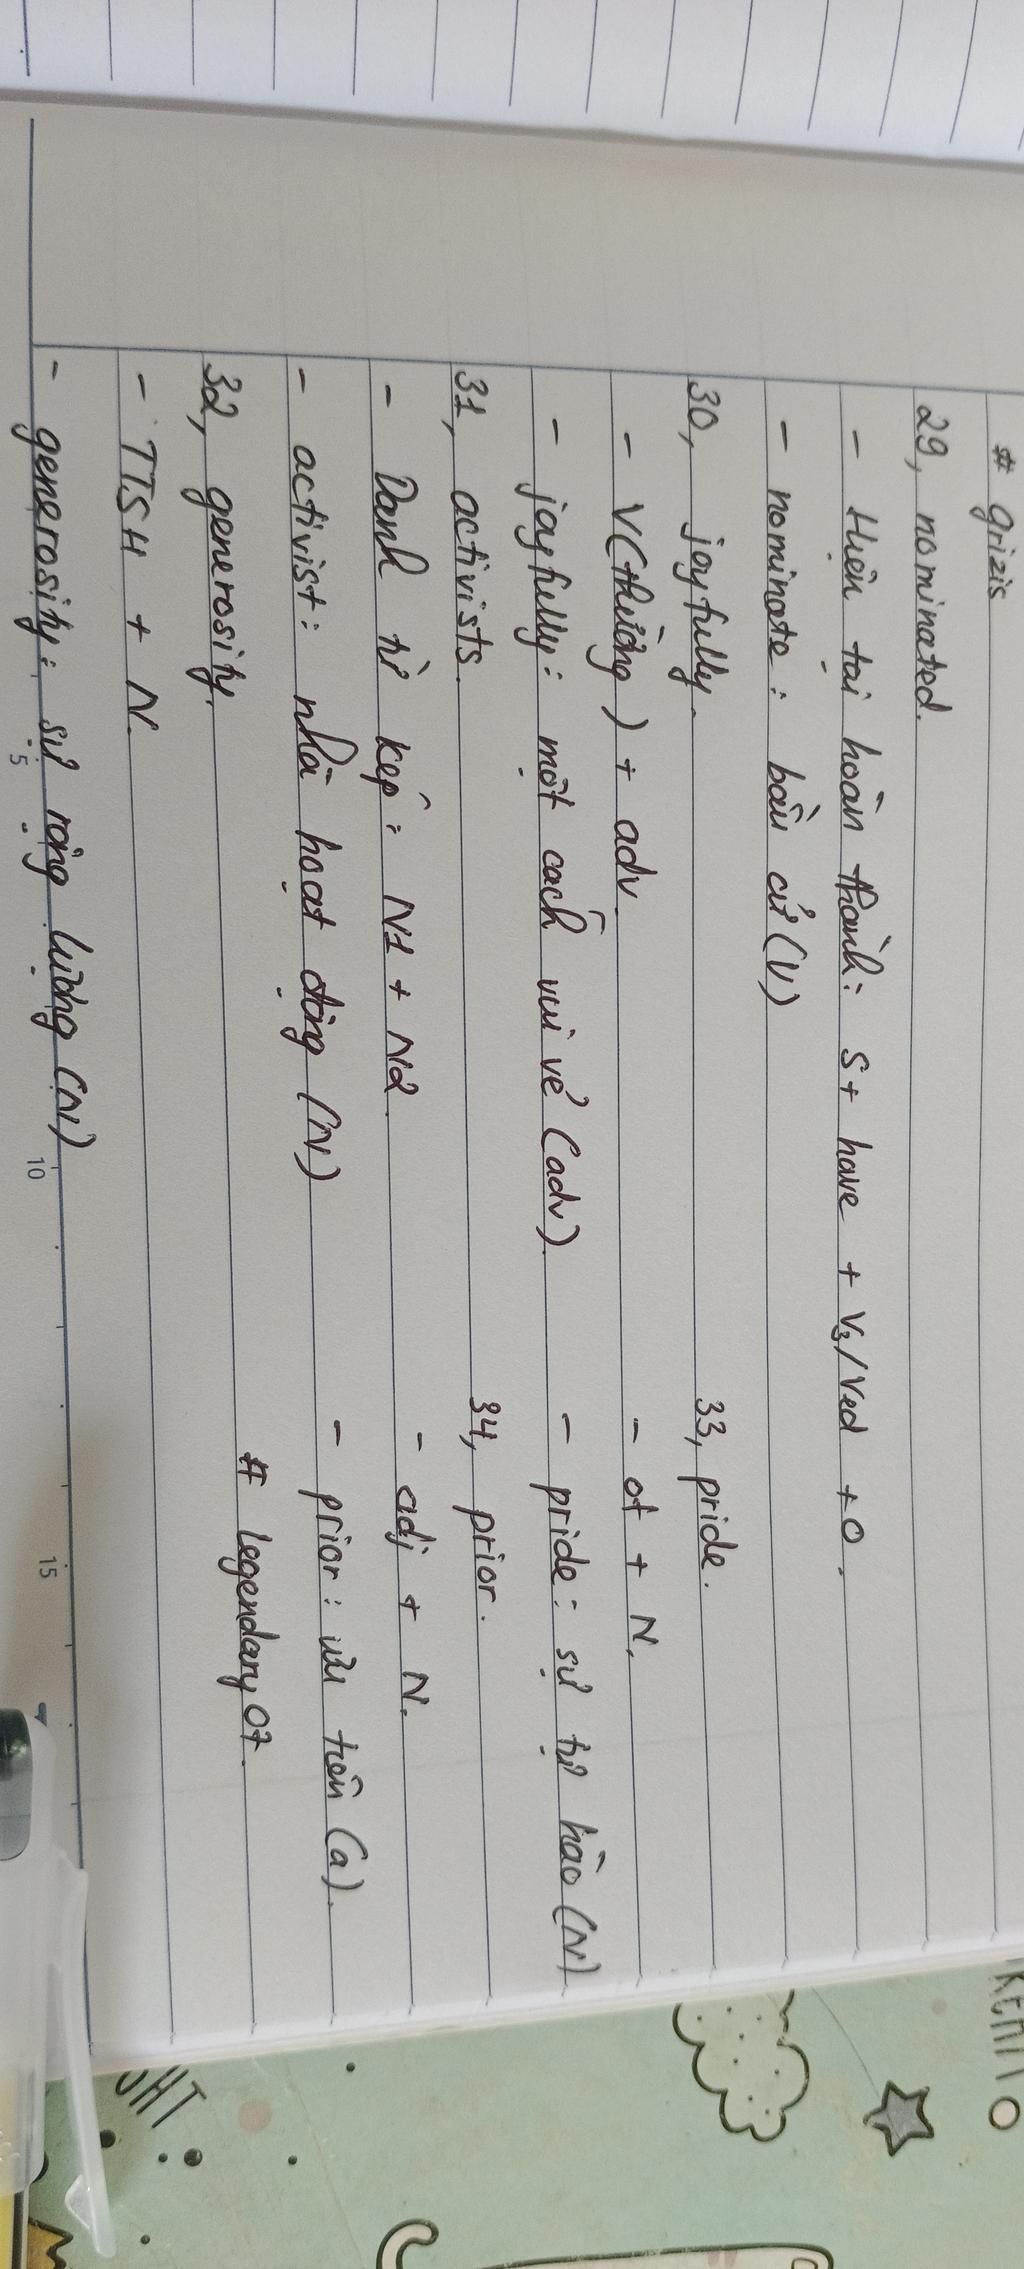 # grizis
29, nominated.
- Hiện tại hoàn thành: S + have + V3/Ved + O.
- nominate: bầu cử (V)
30, joyfully.
- V(thường) + adv
- joyfully: một cách vui vẻ (adv)
31, activists.
- Danh từ kép: N1 + N2
- activist: nhà hoạt động (N)
32, generosity.
- TTSH + N.
- generosity: sự rộng lượng (N)
33, pride.
- of + N.
- pride: sự tự hào (N)
34, prior.
- adj + N.
- prior: ưu tiên (a).
# legendary07
5
10
15